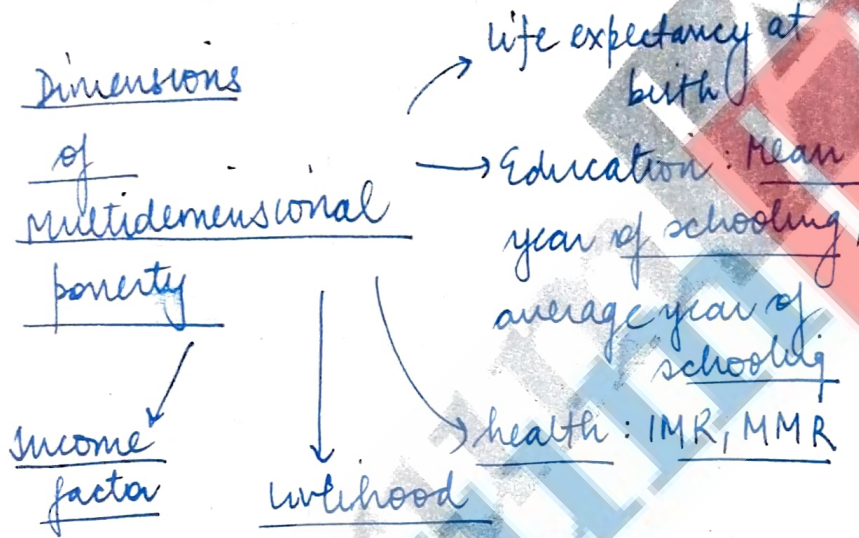 Dimensions
of
Multidemensional
poverty
life expectancy at
birth
Education : Mean
year of schooling,
average year of
schooling
health : IMR, MMR
Livlihood
Income
factor